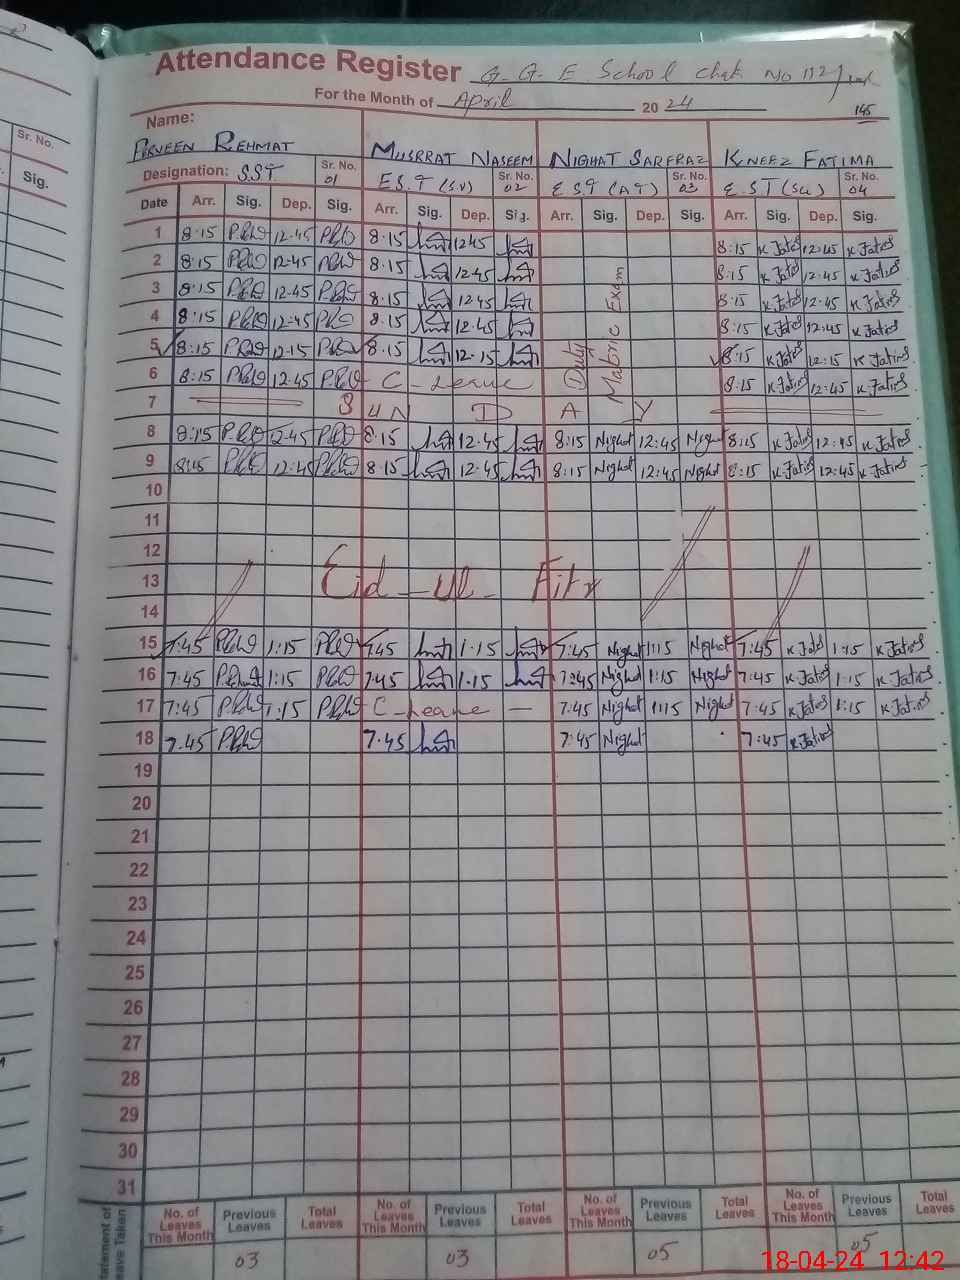 Attendance Register G.G.E School Chak No 112/
For the Month of April 2024
145
Name:
PERVEEN REHMAT MUSRRAT NASEEM NIGHAT SARFRAZ KNEEZ FATIMA
Designation: S.S.T Sr. No. 01 E.S.T (S.V) Sr. No. 02 E.S.T (A T) Sr. No. 03 E.S.T (Su) Sr. No. 04
Date Arr. Sig. Dep. Sig. Arr. Sig. Dep. Sig. Arr. Sig. Dep. Sig. Arr. Sig. Dep. Sig.
1 8:15 12:45 8.15 12 45 8:15 K Fatima 12:45 K Fatima
2 8:15 12.45 8.15 12.45 8:15 K Fatima 12:45 K Fatima
3 8:15 12.45 8.15 12.45 8:15 K Fatima 12:45 K Fatima
4 8:15 12:45 8.15 12.45 8:15 K Fatima 12:45 K Fatima
5 8:15 12.15 8.15 12.15 8:15 K Fatima 12:15 K Fatima
6 8:15 12.45 C-Leave 8:15 K Fatima 12:45 K Fatima
Duty Matric Exam
7 S U N D A Y
8 8:15 12.45 8.15 12.45 8:15 Nighat 12:45 Nighat 8:15 K Fatima 12:45 K Fatima
9 8:15 12:45 8.15 12.45 8:15 Nighat 12:45 Nighat 8:15 K Fatima 12:45 K Fatima
10
11
12
13 Eid-ul-Fitr
14
15 7:45 1:15 7.45 1.15 7:45 Nighat 1:15 Nighat 7:45 K Fatima 1:15 K Fatima
16 7:45 1:15 7.45 1.15 7:45 Nighat 1:15 Nighat 7:45 K Fatima 1:15 K Fatima
17 7:45 1:15 C-Leave — 7:45 Nighat 1:15 Nighat 7:45 K Fatima 1:15 K Fatima
18 7.45 7.45 7:45 Nighat 7:45 K Fatima
19
20
21
22
23
24
25
26
27
28
29
30
31
No. of Leaves This Month Previous Leaves Total Leaves No. of Leaves This Month Previous Leaves Total Leaves No. of Leaves This Month Previous Leaves Total Leaves No. of Leaves This Month Previous Leaves Total Leaves
03 03 05 05
18-04-24 12:42
Sr. No.
Sig.